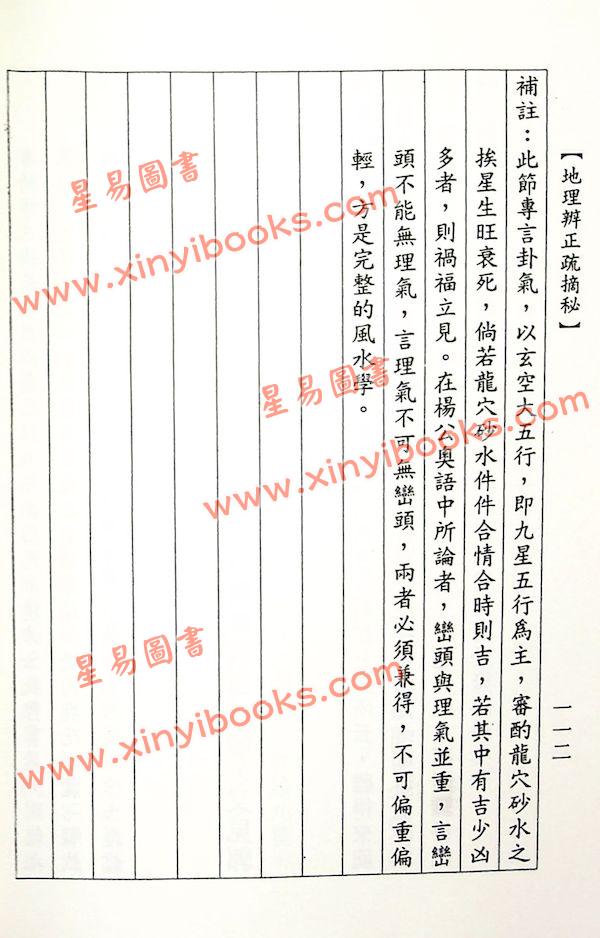 【地理辨正疏摘秘】
一一二
補註：此節專言卦氣，以玄空大五行，即九星五行爲主，審酌龍穴砂水之
挨星生旺衰死，倘若龍穴砂水件件合情合時則吉，若其中有吉少凶
多者，則禍福立見。在楊公奧語中所論者，巒頭與理氣並重，言巒
頭不能無理氣，言理氣不可無巒頭，兩者必須兼得，不可偏重偏
輕，方是完整的風水學。
星易圖書
www.xinyibooks.com
星易圖書
www.xinyibooks.com
星易圖書
www.xinyibooks.com